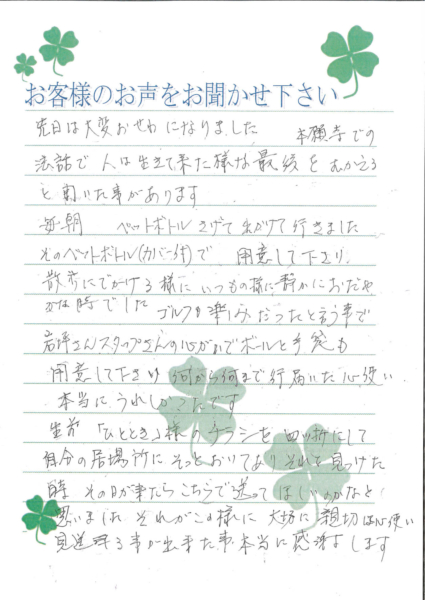 お客様のお声をお聞かせ下さい
先日は大変おせわになりました 本願寺での
法話で 人は生きて来た様な最後をむかえる
と聞いた事があります
毎朝 ペットボトルさげて出かけて行きました
そのペットボトル(カバー付)で 用意して下さり
散歩にでかける様に いつもの様に静かにおだや
かな時でした ゴルフも楽しみだったと言う事で
岩坪さんスタッフさんの心がけでボールと手袋も
用意して下さり 何から何まで行届いた心使い
本当にうれしかったです
生前 「ひととき」様のチラシを四ッ折にして
自分の居場所にそっとおいてあり それを見つけた
時 その日が来たらこちらで送ってほしいのかなと
思いました それがこの様に 大切に 親切な心使い
見送る事が出来た事本当に感謝します